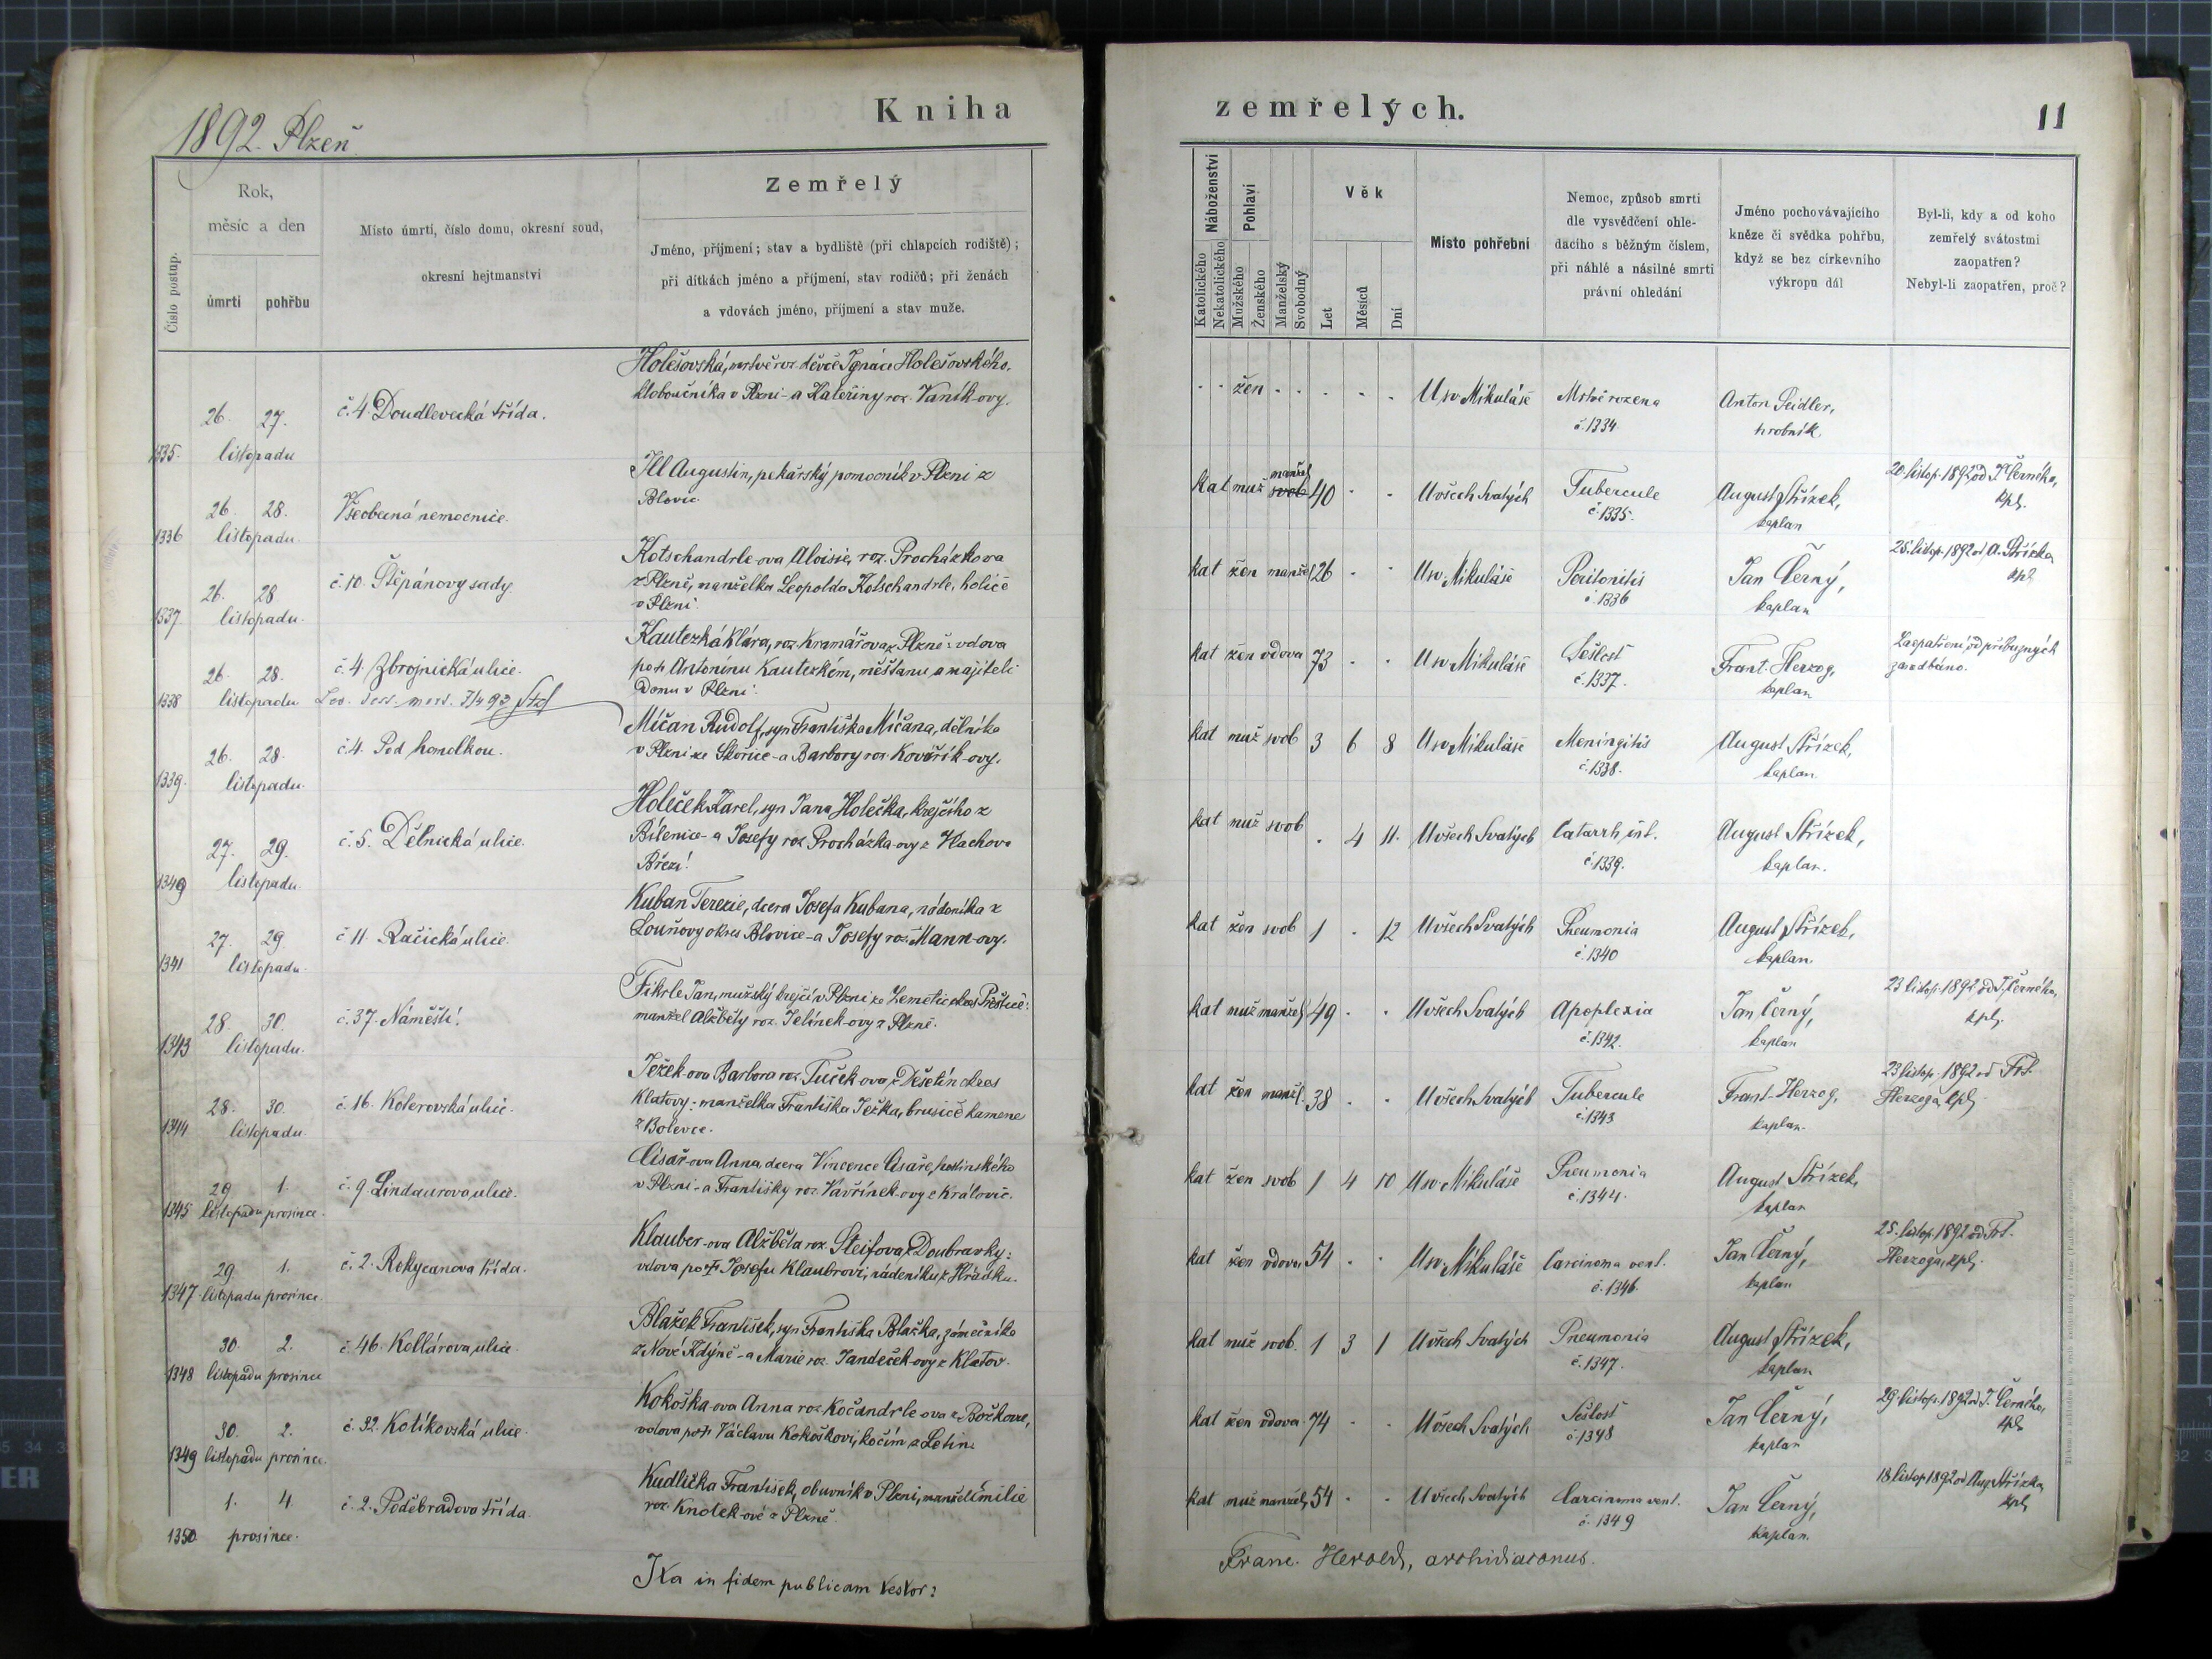 1892. Plzeň
Kniha
Číslo postup.
Rok,
měsíc a den
úmrtí
pohřbu
Místo úmrtí, číslo domu, okresní soud,
okresní hejtmanství
Zemřelý
Jméno, příjmení; stav a bydliště (při chlapcích rodiště);
při dítkách jméno a příjmení, stav rodičů; při ženách
a vdovách jméno, příjmení a stav muže.
1335. 26. 27. listopadu
č. 4. Doudlevecká třída.
Holešovská, mrtvě roz. děvče Ignáce Holešovského,
kloboučníka v Plzni - a Kateřiny roz. Vaník-ovy.
1336 26. 28. listopadu.
Všeobecná nemocnice.
Jll Augustin, pekařský pomocník v Plzni z
Blovic.
1337 26. 28 listopadu.
č. 10. Štěpánovy sady.
Kotschandrle-ova Aloisie, roz. Procházkova
z Plzně, manželka Leopolda Kotschandrle, holiče
v Plzni.
1338 26. 28. listopadu
č. 4. Zbrojnická ulice.
Kautezká Klára, roz. Kramářova z Plzně: vdova
po † Antonínu Kautezkém, měšťanu a majiteli
domu v Plzni.
1339. 26. 28. listopadu.
č. 4. Pod homolkou.
Míčan Rudolf, syn Františka Míčana, dělníka
v Plzni ze Skořice - a Barbory roz. Kovářík-ovy.
1340 27. 29. listopadu.
č. 5. Dělnická ulice.
Holeček Karel, syn Jana Holečka, krejčího z
Bílenice - a Josefy roz. Procházka-ovy z Vlachova
Březí.
1341 27. 29. listopadu.
č. 11. Račická ulice.
Kuban Terezie, dcera Josefa Kubana, nádeníka z
Louňovy okres Blovice - a Josefy roz. Mann-ovy.
1343 28. 30. listopadu.
č. 37. Náměstí.
Fikrle Jan, mužský krejčí v Plzni ze Zemetic okres Přeštice:
manžel Alžběty roz. Jelínek-ovy z Plzně.
1344 28. 30. listopadu.
č. 16. Kolerovská ulice.
Ježek-ova Barbora roz. Tuček-ova z Dešetín okres
Klatovy: manželka Františka Ježka, brusiče kamene
z Bolevce.
1345 29 1. listopadu prosince.
č. 9. Lindaurova ulice.
Císař-ova Anna, dcera Vincence Císaře, hostinského
v Plzni - a Františky roz. Vavřínek-ovy z Královic.
1347 29 1. listopadu prosince.
č. 2. Rokycanova třída.
Klauber-ova Alžběta roz. Steifova z Doubravky:
vdova po † Josefu Klaubrovi, nádeníku z Hrádku.
1348 30. 2. listopadu prosince
č. 46. Kollárova ulice.
Blažek František, syn Františka Blažka, zámečníka
z Nové Kdýně - a Marie roz. Jandeček-ovy z Klatov.
1349 30. 2. listopadu prosince.
č. 32. Kotíkovská ulice.
Kokoška-ova Anna roz. Kočandrle-ova z Božkova,
vdova po † Václavu Kokoškovi, kočím z Letin.
1350 1. 4. prosince.
č. 2. Poděbradova třída.
Kudlička František, obuvník v Plzni, manžel Emilie
roz. Knotek-ové z Plzně.
Ita in fidem publicam testor:
zemřelých.
11
Náboženství
Katolického
Nekatolického
Pohlaví
Mužského
Ženského
Manželský
Svobodný
Věk
Let
Měsíců
Dní
Místo pohřební
Nemoc, způsob smrti
dle vysvědčení ohle-
dacího s běžným číslem,
při náhlé a násilné smrti
právní ohledání
Jméno pochovávajícího
kněze či svědka pohřbu,
když se bez církevního
výkropu dál
Byl-li, kdy a od koho
zemřelý svátostmi
zaopatřen?
Nebyl-li zaopatřen, proč?
. . žen . . . . . U sv. Mikuláše Mrtvě rozena Anton Seidler,
č. 1334 hrobník.
kat muž manžel svob 40 . . U všech Svatých Tubercule August Střízek, 20. listop. 1892 od J. Černého,
č. 1335. kaplan kpl.
kat žen manžel 26 . . U sv. Mikuláše Peritonitis Jan Černý, 25. listop. 1892 od A. Střízka
č. 1336 kaplan kpl.
kat žen vdova 73 . . U sv. Mikuláše Sešlost Frant. Herzog, Zaopatření od příbuzných
č. 1337. kaplan zanedbáno.
kat muž svob 3 6 8 U sv. Mikuláše Meningitis August Střízek,
č. 1338. kaplan.
kat muž svob . 4 11. U všech Svatých Catarrh int. August Střízek,
č. 1339. kaplan.
kat žen svob 1 . 12 U všech Svatých Pneumonia August Střízek,
č. 1340 kaplan.
kat muž manžel 49 . . U všech Svatých Apoplexia Jan Černý, 23 listop. 1892 od J. Černého,
č. 1342. kaplan kpl.
kat žen manž. 38 . . U všech Svatých Tubercule Frant. Herzog, 23 listop. 1892 od Frt.
č. 1343 kaplan. Herzoga, kpl.
kat žen svob 1 4 10 U sv. Mikuláše Pneumonia August Střízek,
č. 1344. kaplan
kat žen vdova 54 . . U sv. Mikuláše Carcinoma vent. Jan Černý, 25. listop. 1892 od Frt.
č. 1346. kaplan Herzoga, kpl.
kat muž svob. 1 3 1 U všech Svatých Pneumonia August Střízek,
č. 1347. kaplan
kat žen vdova 74 . . U všech Svatých Sešlost Jan Černý, 29 listop. 1892 od J. Černého,
č. 1348 kaplan kpl.
kat muž manžel 54 . . U všech Svatých Carcinoma vent. Jan Černý, 18 listop. 1892 od Aug. Střízka,
č. 1349 kaplan. kpl.
Franc. Herold, archidiaconus.